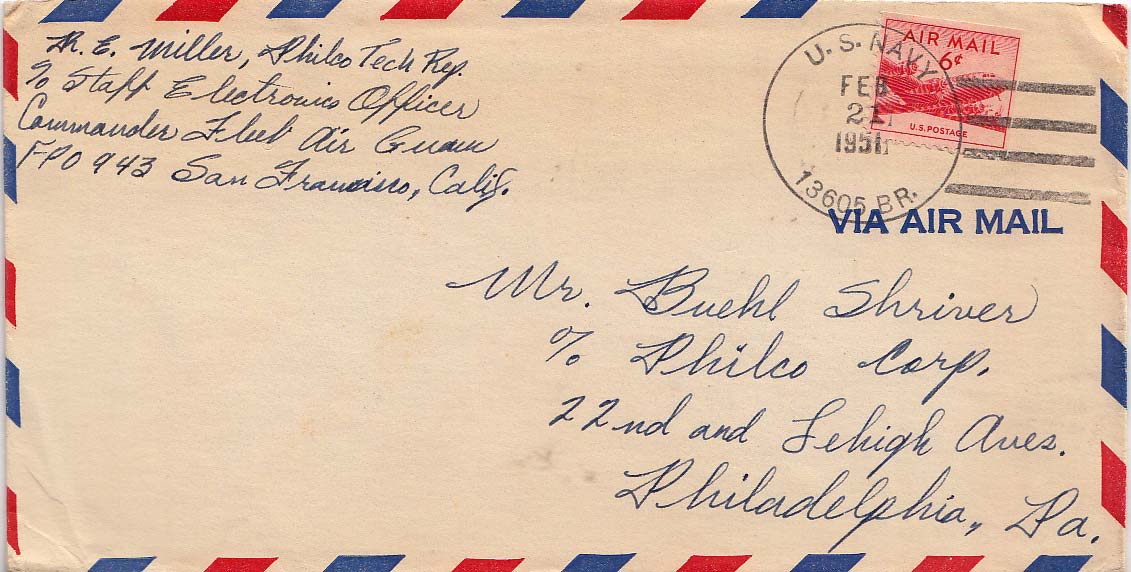 R. E. Miller, Philco Tech Rep.
c/o Staff Electronics Officer
Commander Fleet Air Guam
FPO 943 San Francisco, Calif.
U.S. NAVY
FEB
21
1951
13605 BR.
AIR MAIL
6¢
U.S. POSTAGE
VIA AIR MAIL
Mr. Buehl Shriver
c/o Philco Corp.
22nd and Lehigh Aves.
Philadelphia, Pa.